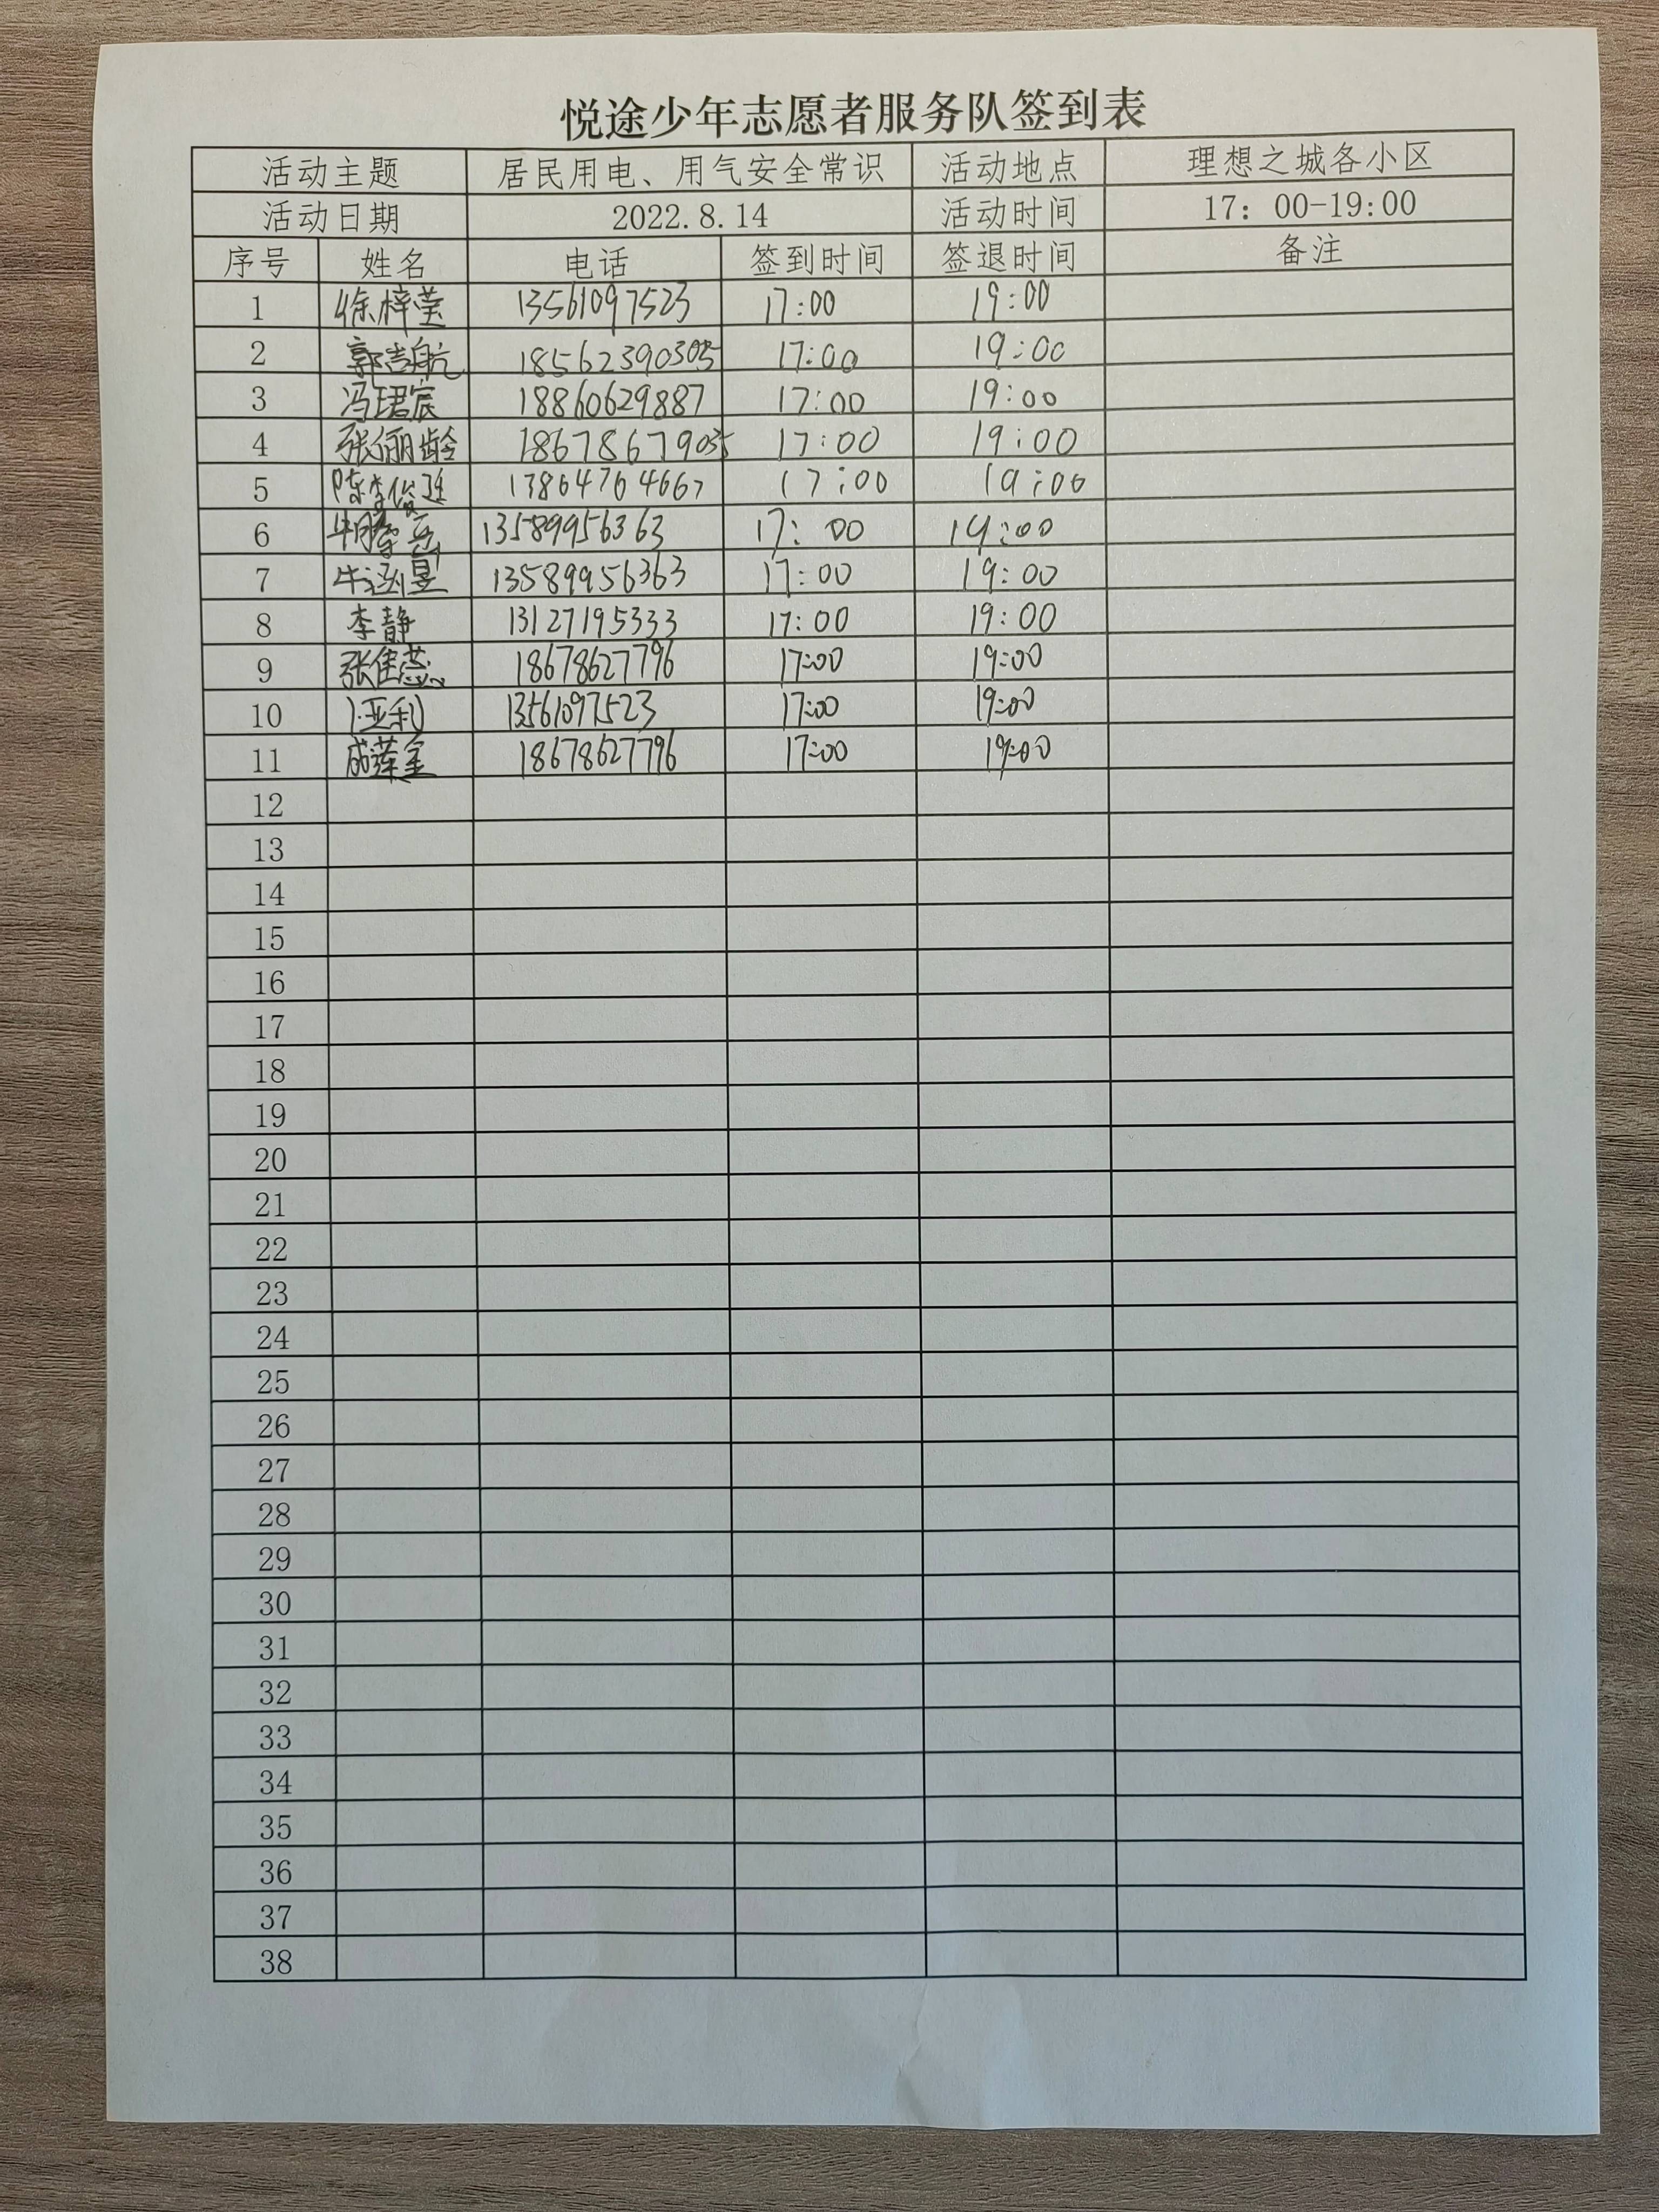 悦途少年志愿者服务队签到表
活动主题 居民用电、用气安全常识 活动地点 理想之城各小区
活动日期 2022.8.14 活动时间 17：00-19:00
序号 姓名 电话 签到时间 签退时间 备注
1 徐梓莹 13561097523 17:00 19:00
2 郭吉航 18562390305 17:00 19:00
3 冯珺宸 18860629887 17:00 19:00
4 张俪龄 18678679035 17:00 19:00
5 陈李俊廷 13864764667 17:00 19:00
6 13589956363 17:00 19:00
7 牛涵昱 13589956363 17:00 19:00
8 李静 13127195333 17:00 19:00
9 张佳蕊 18678627796 17:00 19:00
10 卜亚利 13561097523 17:00 19:00
11 成莲金 18678627796 17:00 19:00
12
13
14
15
16
17
18
19
20
21
22
23
24
25
26
27
28
29
30
31
32
33
34
35
36
37
38